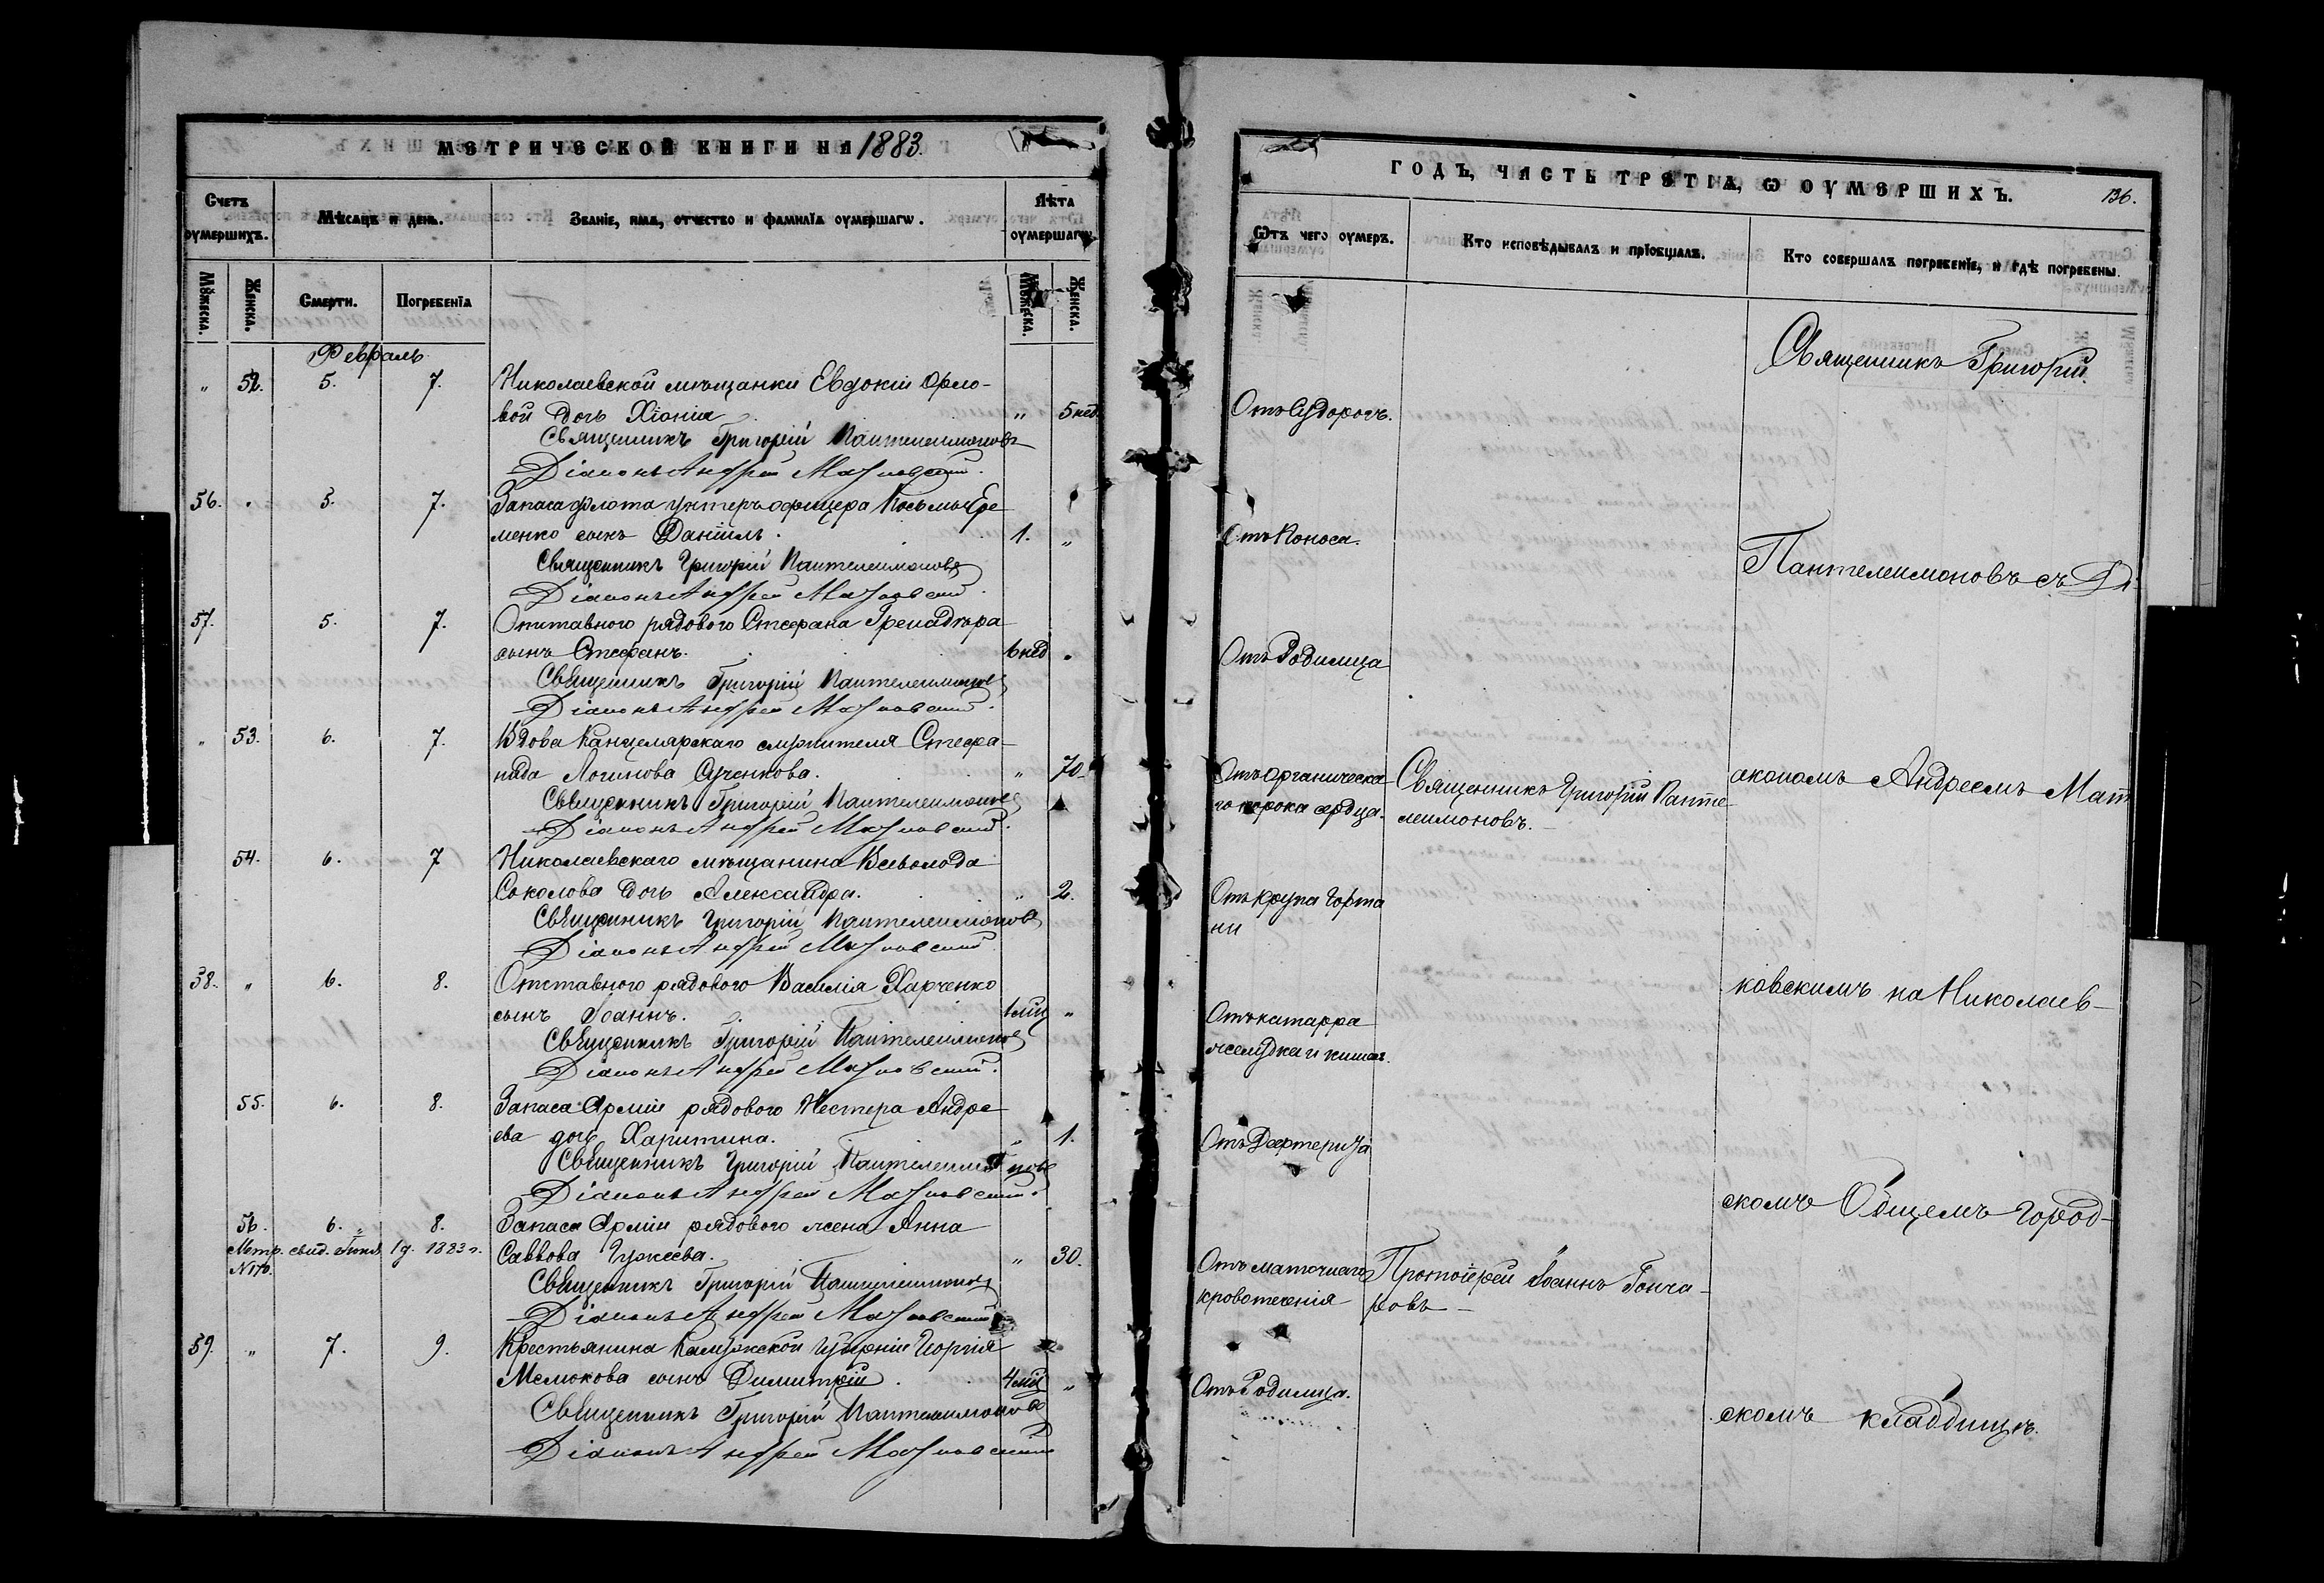 МЕТРИЧЕСКОЙ КНИГИ НА 1883.
Счетъ оумершихъ.
Мѣсяцъ и день.
Званіе, имя, отчество и фамилїа оумершагω.
Лѣта оумершагω
Мȣжеска.
Женска.
Смерти.
Погребенїа
Мȣжеска.
Женска.
Февраль
" 52. 5. 7. Николаевской мѣщанки Евдокіи Орло-
вой дочь Хіонія " 5 нед.
Священникъ Григорій Пантелеимоновъ
Діаконъ Андрей
56. " 5. 7. Запаса флота унтеръ офицера Косьмы Ере
менко сынъ Даніилъ. 1. "
Священникъ Григорій Пантелеимоновъ
Діаконъ Андрей
57. 5. 7. Отставного рядового Стефана Гренадюра
сынъ Стефанъ. 6 нед "
Священникъ Григорій Пантелеимоновъ
Діаконъ Андрей
" 53. 6. 7. Вдова Канцелярскаго служителя Стефа-
нида Логинова Сученкова. " 70.
Священникъ Григорій Пантелеимоновъ
Діаконъ Андрей
54. 6. 7 Николаевскаго мѣщанина Всеволода
Соколова дочь Александра. " 2.
Священникъ Григорій Пантелеимоновъ
Діаконъ Андрей
58. " 6. 8. Отставного рядового Василія Харченко
сынъ Іоаннъ. 1 мц "
Священникъ Григорій Пантелеимоновъ
Діаконъ Андрей
55. 6. 8. Запаса Арміи рядового Нестера Андре
ева дочь Харитина. " 1.
Священникъ Григорій Пантелеимоновъ
Діаконъ Андрей
56. 6. " 8. Запаса Арміи рядового жена Анна
Метр. свид. 1883 г. Саввова " 30.
N170.
Священникъ Григорій Пантелеимоновъ
Діаконъ Андрей
59. " 7. 9. Крестьянина Калужской Губерніи Георгія
сынъ Димитрій. 4 мц "
Священникъ Григорій Пантелеимоновъ
Діаконъ Андрей
ГОДЪ, ЧАСТЬ ТРЕТІА, Ѡ ОУМЕРШИХЪ.
136.
Ѿтъ чего оумеръ.
Кто исповѣдывалъ и прїобщалъ.
Кто совершалъ погребенїе, и гдѣ погребены.
Священникъ Григорій
Отъ Судорогъ.
Отъ Поноса.
Пантелеимоновъ съ Ді-
Отъ Родимца
Отъ органическа
го порока сердца.
Священникъ Григорій Панте-
леимоновъ.
акономъ Андреемъ Мат
Отъ крупа Горта
ни
ковскимъ на Николаев-
Отъ катарра
желудка и кишекъ.
Отъ Дефтерита
скомъ Общемъ Город-
Отъ маточнаго
кровотеченія
Протоіерей Іоаннъ Гонча-
ровъ
Отъ Родимца.
скомъ кладбищѣ.